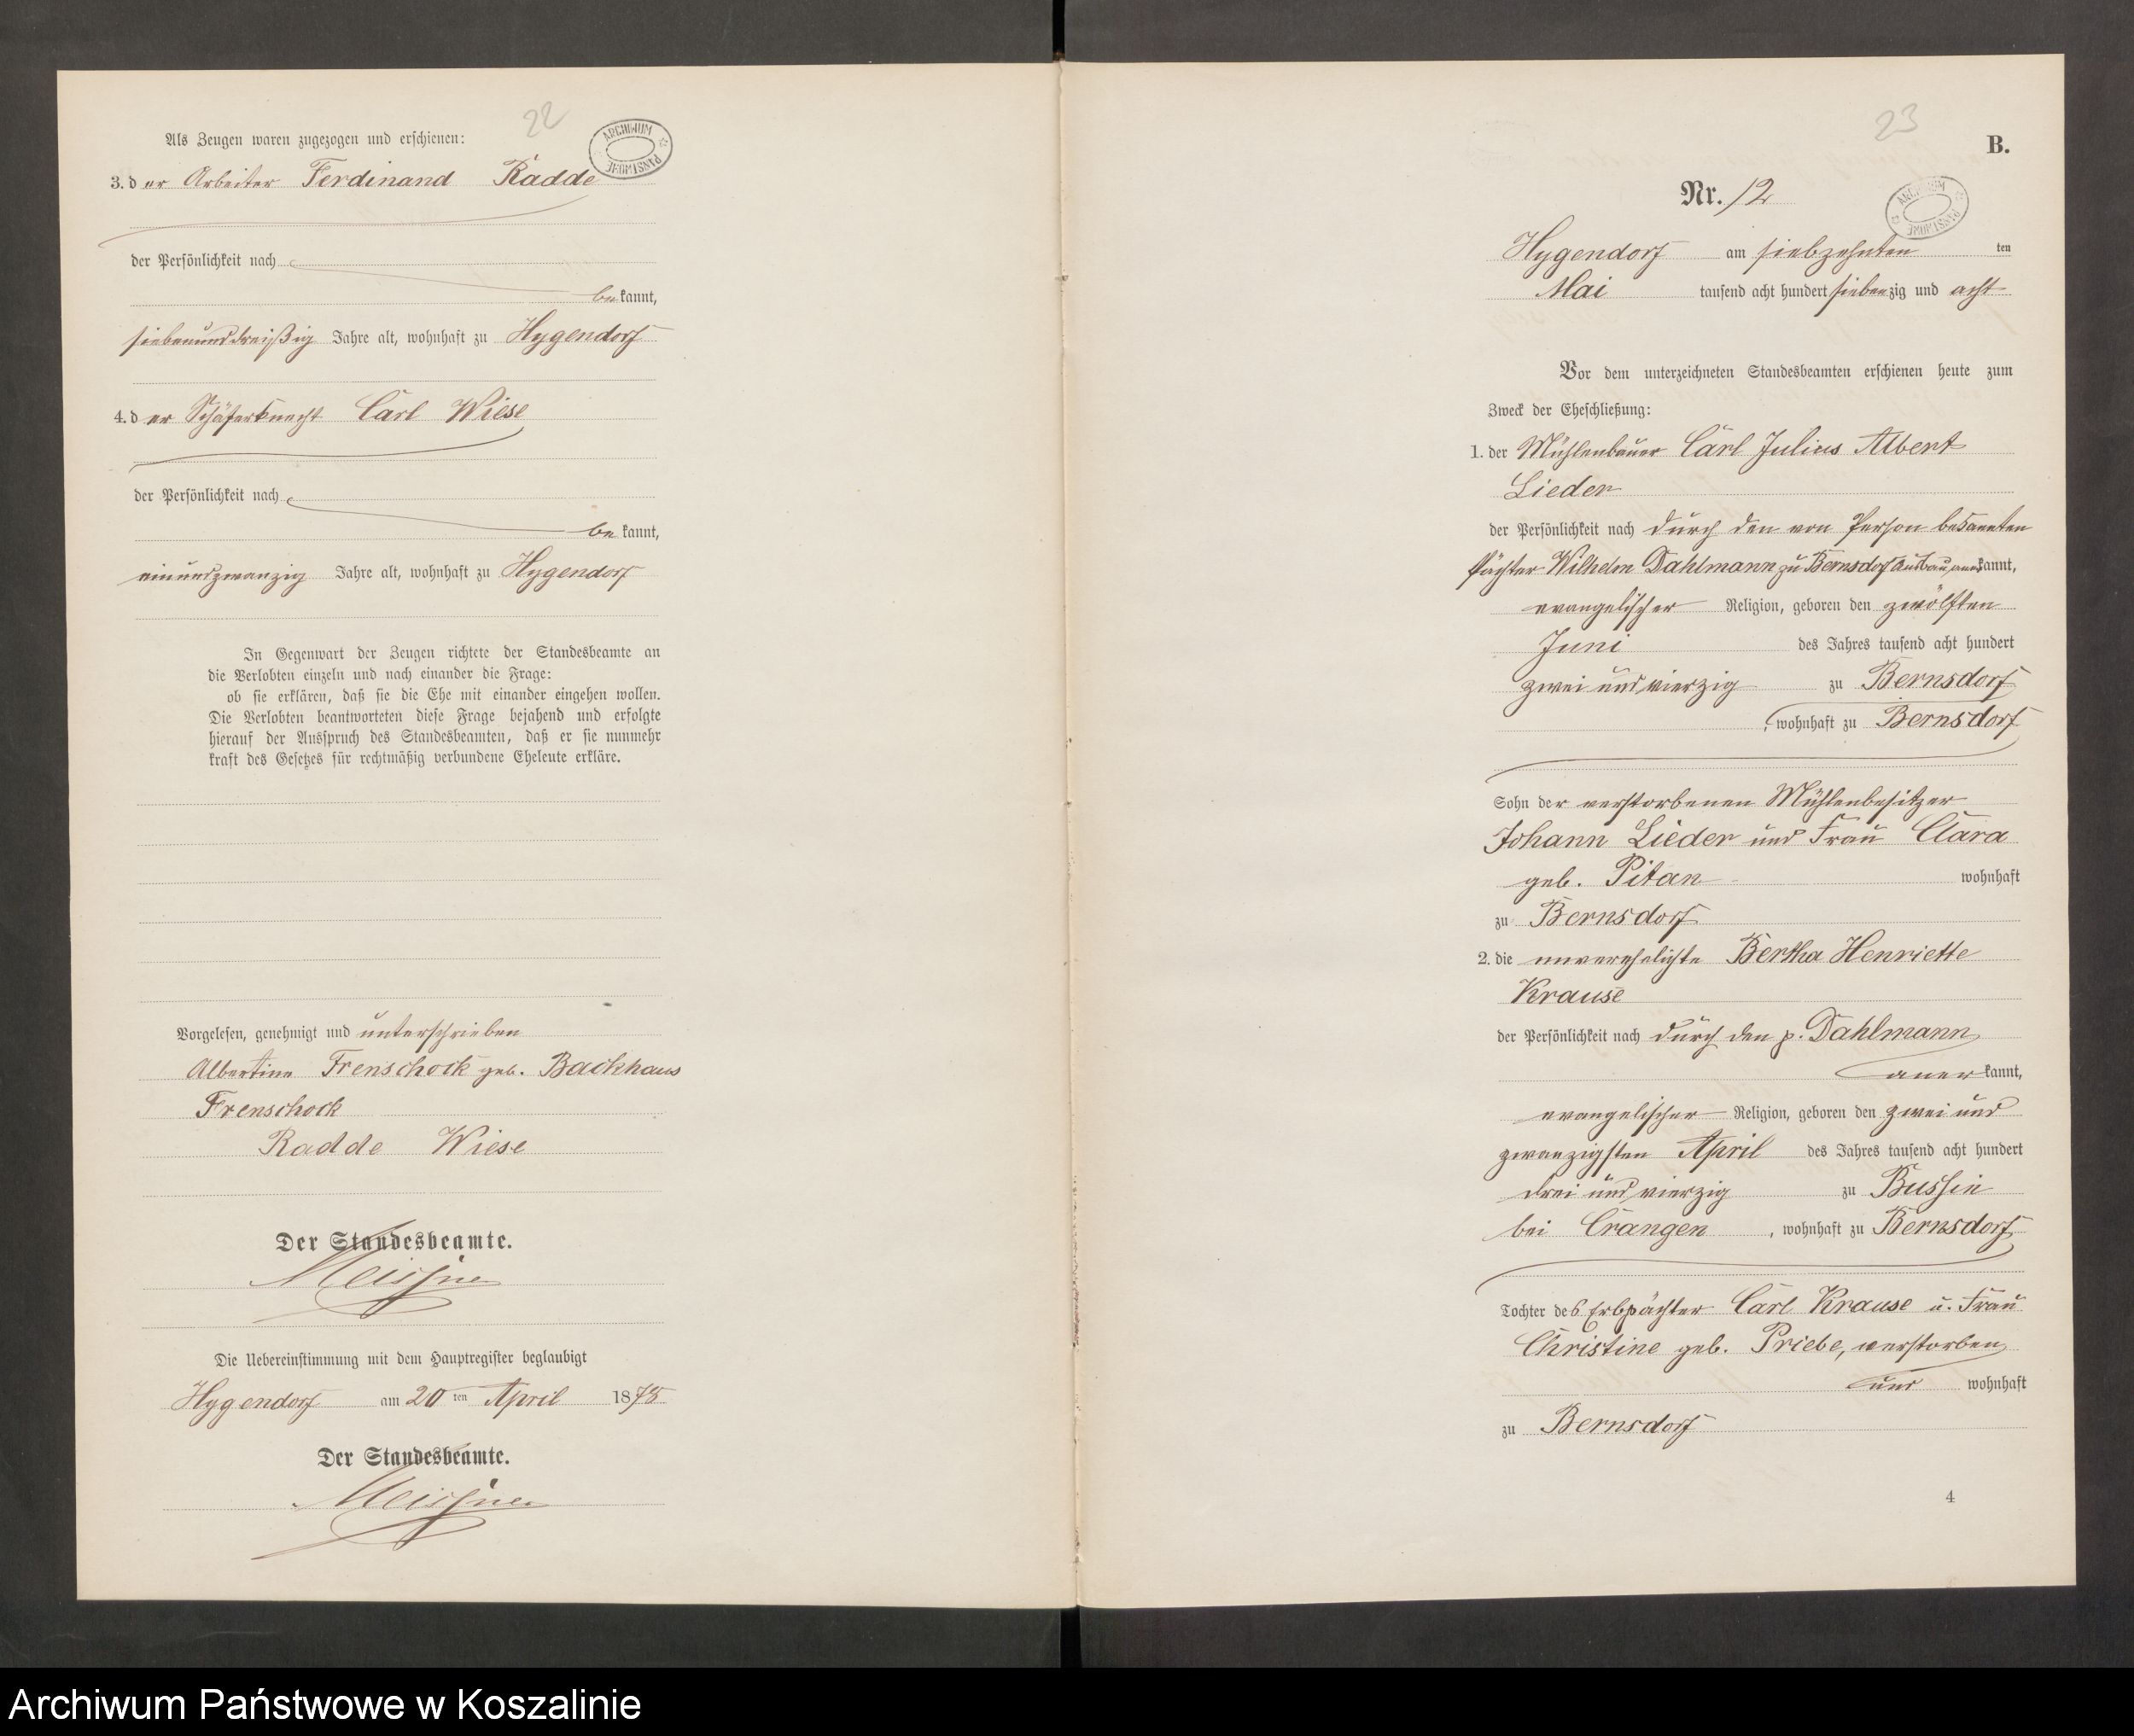 22
ARCHIWUM PAŃSTWOWE
Als Zeugen waren zugezogen und erschienen:
3. der Arbeiter Ferdinand Radde
der Persönlichkeit nach
bekannt,
siebenunddreißig Jahre alt, wohnhaft zu Hygendorf
4. der Schäferknecht Carl Wiese
der Persönlichkeit nach
bekannt,
einundzwanzig Jahre alt, wohnhaft zu Hygendorf
In Gegenwart der Zeugen richtete der Standesbeamte an
die Verlobten einzeln und nach einander die Frage:
ob sie erklären, daß sie die Ehe mit einander eingehen wollen.
Die Verlobten beantworteten diese Frage bejahend und erfolgte
hierauf der Ausspruch des Standesbeamten, daß er sie nunmehr
kraft des Gesetzes für rechtmäßig verbundene Eheleute erkläre.
Vorgelesen, genehmigt und unterschrieben
Albertine Frenschock geb. Backhaus
Frenschock
Radde Wiese
Der Standesbeamte.
Meissner
Die Uebereinstimmung mit dem Hauptregister beglaubigt
Hygendorf am 20ten April 1878
Der Standesbeamte.
Meissner
23
B.
ARCHIWUM PAŃSTWOWE
Nr. 12
Hygendorf am siebzehnten ten
Mai tausend acht hundert siebenzig und acht
Vor dem unterzeichneten Standesbeamten erschienen heute zum
Zweck der Eheschließung:
1. der Mühlenbauer Carl Julius Albert
Lieder
der Persönlichkeit nach durch den von Person bekannten
Pächter Wilhelm Dahlmann zu Bernsdorf Ausbau anerkannt,
evangelischer Religion, geboren den zwölften
Juni des Jahres tausend acht hundert
zwei und vierzig zu Bernsdorf
, wohnhaft zu Bernsdorf
Sohn der verstorbenen Mühlenbesitzer
Johann Lieder und Frau Clara
geb. Pitan wohnhaft
zu Bernsdorf
2. die unverehelichte Bertha Henriette
Krause
der Persönlichkeit nach durch den p. Dahlmann
anerkannt,
evangelischer Religion, geboren den zwei und
zwanzigsten April des Jahres tausend acht hundert
drei und vierzig zu Bussin
bei Crangen, wohnhaft zu Bernsdorf
Tochter des Erbpächter Carl Krause u. Frau
Christine geb. Priebe, verstorben
und wohnhaft
zu Bernsdorf
4
Archiwum Państwowe w Koszalinie